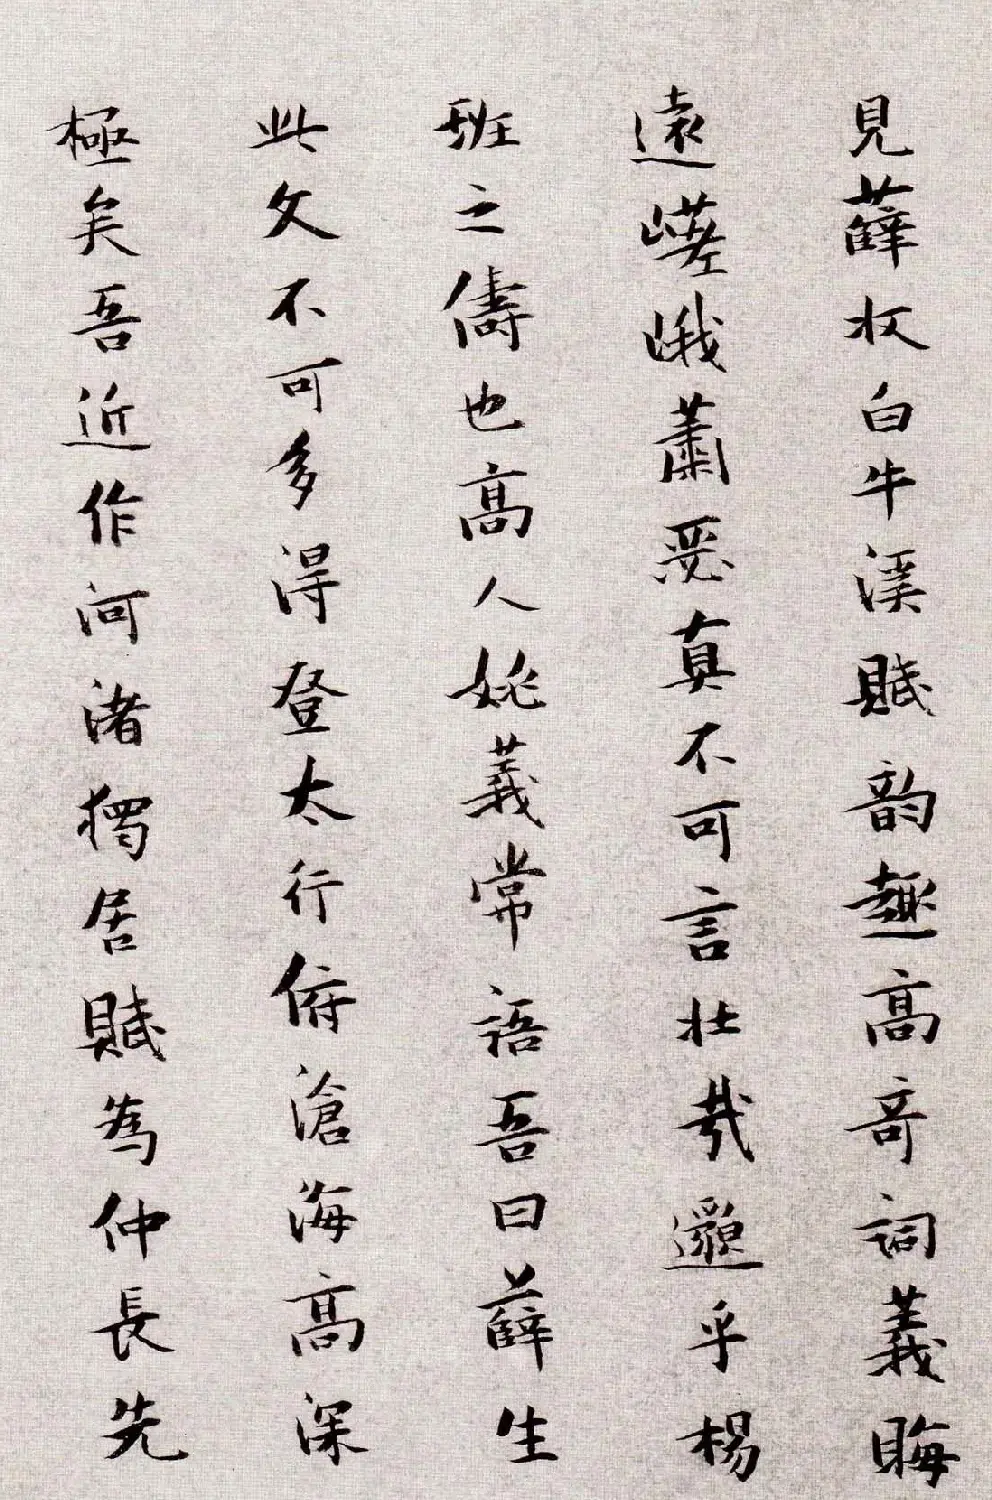 見薛收白牛溪賦韵趣高奇詞義晦
遠嵯峨蕭瑟真不可言壯哉邈乎楊
班之儔也高人姚義常語吾曰薛生
此文不可多得登太行俯滄海高深
極矣吾近作河渚獨居賦為仲長先